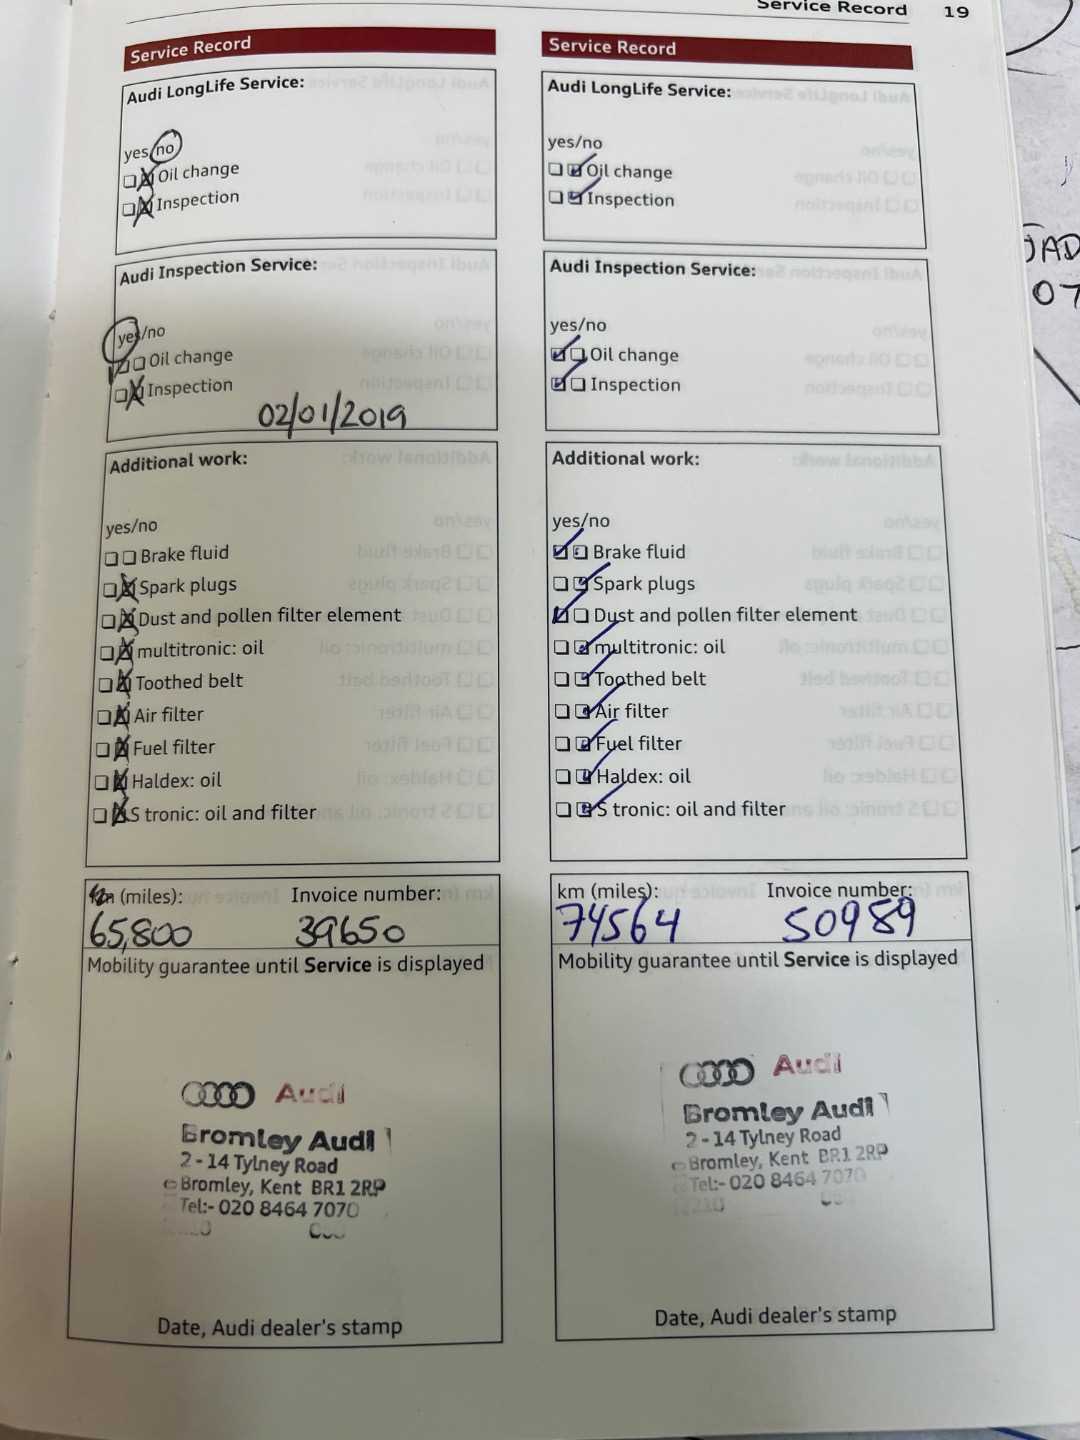 Service Record 19
Service Record
Audi LongLife Service:
yes/no
Oil change
Inspection
Audi Inspection Service:
yes/no
Oil change
Inspection
02/01/2019
Additional work:
yes/no
Brake fluid
Spark plugs
Dust and pollen filter element
multitronic: oil
Toothed belt
Air filter
Fuel filter
Haldex: oil
S tronic: oil and filter
km (miles): Invoice number:
65,800 39650
Mobility guarantee until Service is displayed
Audi
Bromley Audi
2-14 Tylney Road
Bromley, Kent BR1 2RP
Tel:- 020 8464 7070
Date, Audi dealer's stamp
Service Record
Audi LongLife Service:
yes/no
Oil change
Inspection
Audi Inspection Service:
yes/no
Oil change
Inspection
Additional work:
yes/no
Brake fluid
Spark plugs
Dust and pollen filter element
multitronic: oil
Toothed belt
Air filter
Fuel filter
Haldex: oil
S tronic: oil and filter
km (miles): Invoice number:
74564 50989
Mobility guarantee until Service is displayed
Audi
Bromley Audi
2-14 Tylney Road
Bromley, Kent BR1 2RP
Tel:- 020 8464 7070
Date, Audi dealer's stamp
07